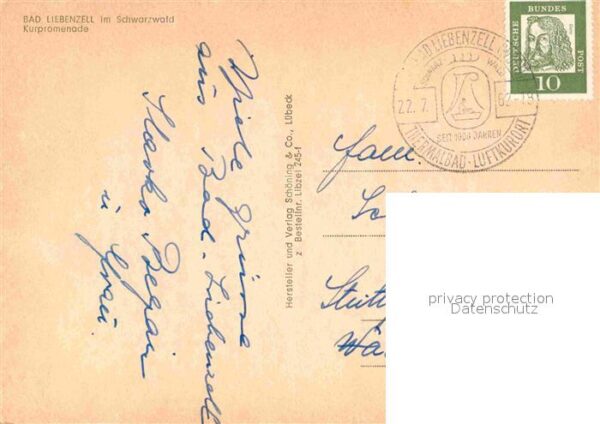 BAD LIEBENZELL im Schwarzwald
Kurpromenade
Viele Grüsse
aus Bad-Liebenzell
Slavko
u. Frau.
Hersteller und Verlag Schöning & Co., Lübeck
z Bestellnr. Libzel 245-1
BAD LIEBENZELL
22.7. 62-19
SEIT 1000 JAHREN
THERMALBAD-LUFTKURORT
DEUTSCHE BUNDESPOST
10
Fam.
privacy protection
Delcampe